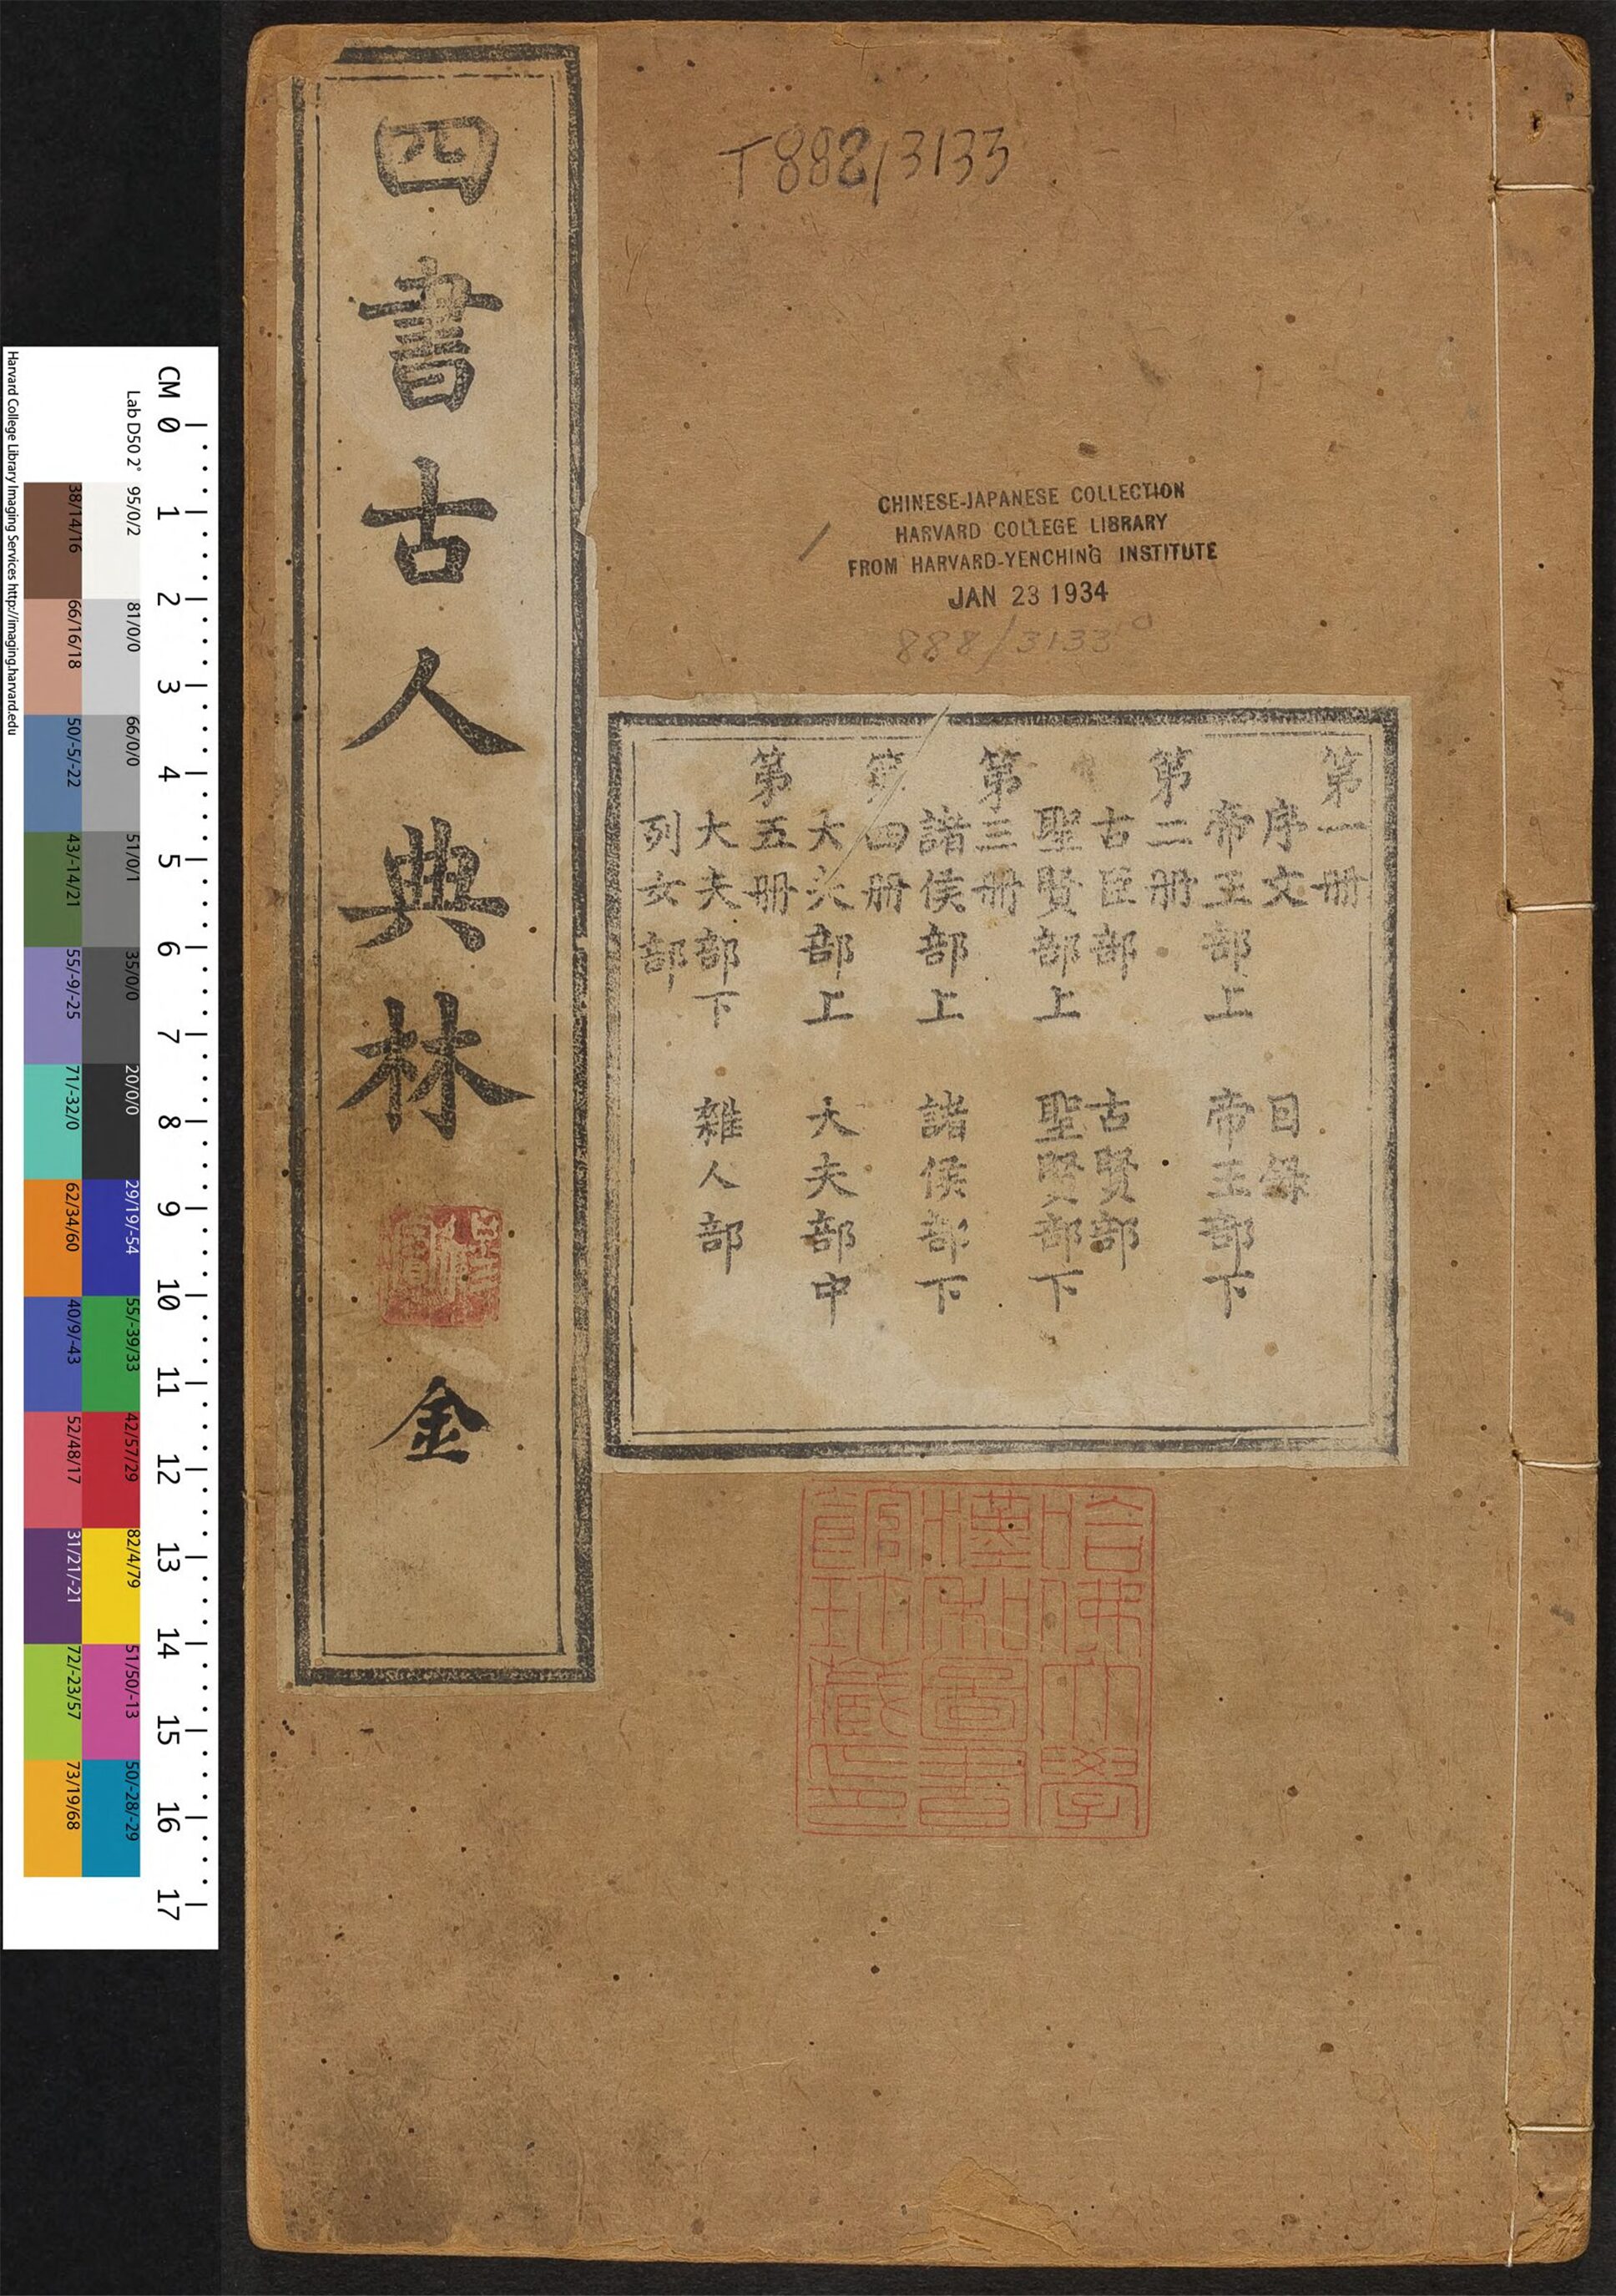 四書古人典林
金
T888/3133
CHINESE-JAPANESE COLLECTION
HARVARD COLLEGE LIBRARY
FROM HARVARD-YENCHING INSTITUTE
JAN 23 1934
888/3133
第一册
序文 目錄
帝王部上 帝王部下
第二册
古臣部 古賢部
聖賢部上 聖賢部下
第三册
諸侯部上 諸侯部下
第四册
大夫部上 大夫部中
第五册
大夫部下 雜人部
列女部
哈佛大學
漢和圖書
館珍藏印
CM 0 1 2 3 4 5 6 7 8 9 10 11 12 13 14 15 16 17
Lab D50 2° 95/0/2 81/0/0 66/0/0 51/0/1 35/0/0 20/0/0 29/19/-54 55/-39/33 42/57/29 82/4/79 51/50/-13 50/-28/-29
38/14/16 66/16/18 50/-5/-22 43/-14/21 55/-9/-25 71/-32/0 62/34/60 40/9/-43 52/48/17 31/21/-21 72/-23/57 73/19/68
Harvard College Library Imaging Services http://imaging.harvard.edu